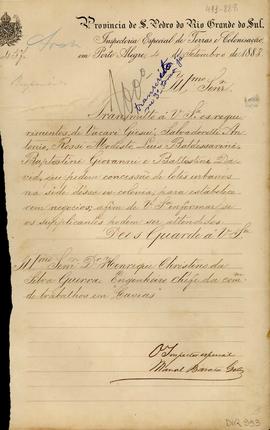 Provincia de S. Pedro do Rio Grande do Sul.
Inspectoria Especial de Terras e Colonisação
em Porto Alegre, 4 de Setembro de 1887.
Ill.mo Snr.
Transmitto a V. S. os reque
rimentos de Vacari Giosué, Salvadoretti An
tonio, Rossi Modesto, Luis Baldessarini,
Baptostini Giovanni e Da
vid, que pedem concessão de lotes urbanos
na séde dessa ex colonia, para estabele
cer negocios; afim de V. S. informar se
os supplicantes podem ser attendidos.
Deos Guarde a V. S.
Ill.mo Snr. Dr. Henrique Christino da
Silva Guerra, Engenheiro chefe da com.
de trabalhos em Caxias
O Inspector especial
Manoel